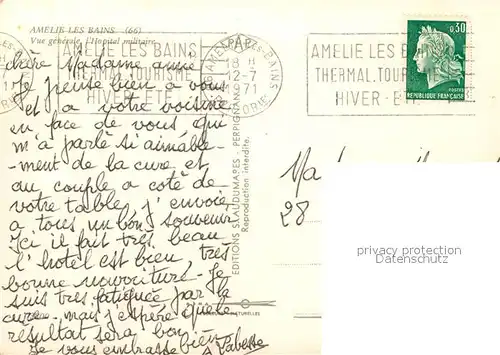 AMELIE LES BAINS (66)
Vue générale. L'Hôpital militaire
AMELIE LES BAINS
THERMAL.TOURISME
HIVER-ETE
AMELIE-LES-BAINS
18 H
12-7
1971
AMELIE LES B
THERMAL.TOUR
HIVER-ET
0,30
POSTES
REPUBLIQUE FRANÇAISE
chère Madame amie
Je pense bien a vous
et a votre voisine
en face de vous qui
m'a parlé si aimable-
-ment de la cure et
au couple a coté de
votre table, j'envoie
a tous un bon souvenir
Ici il fait très beau
l'hotel est bien, très
bonne nourriture. Je
suis très fatiguée par la
cure. mais j'espère que le
resultat sera bon
Je vous embrasse bien
EDITIONS SL AUDUMARES - PERPIGNAN
Reproduction interdite.
NATURELLES
28
privacy protection
Datenschutz